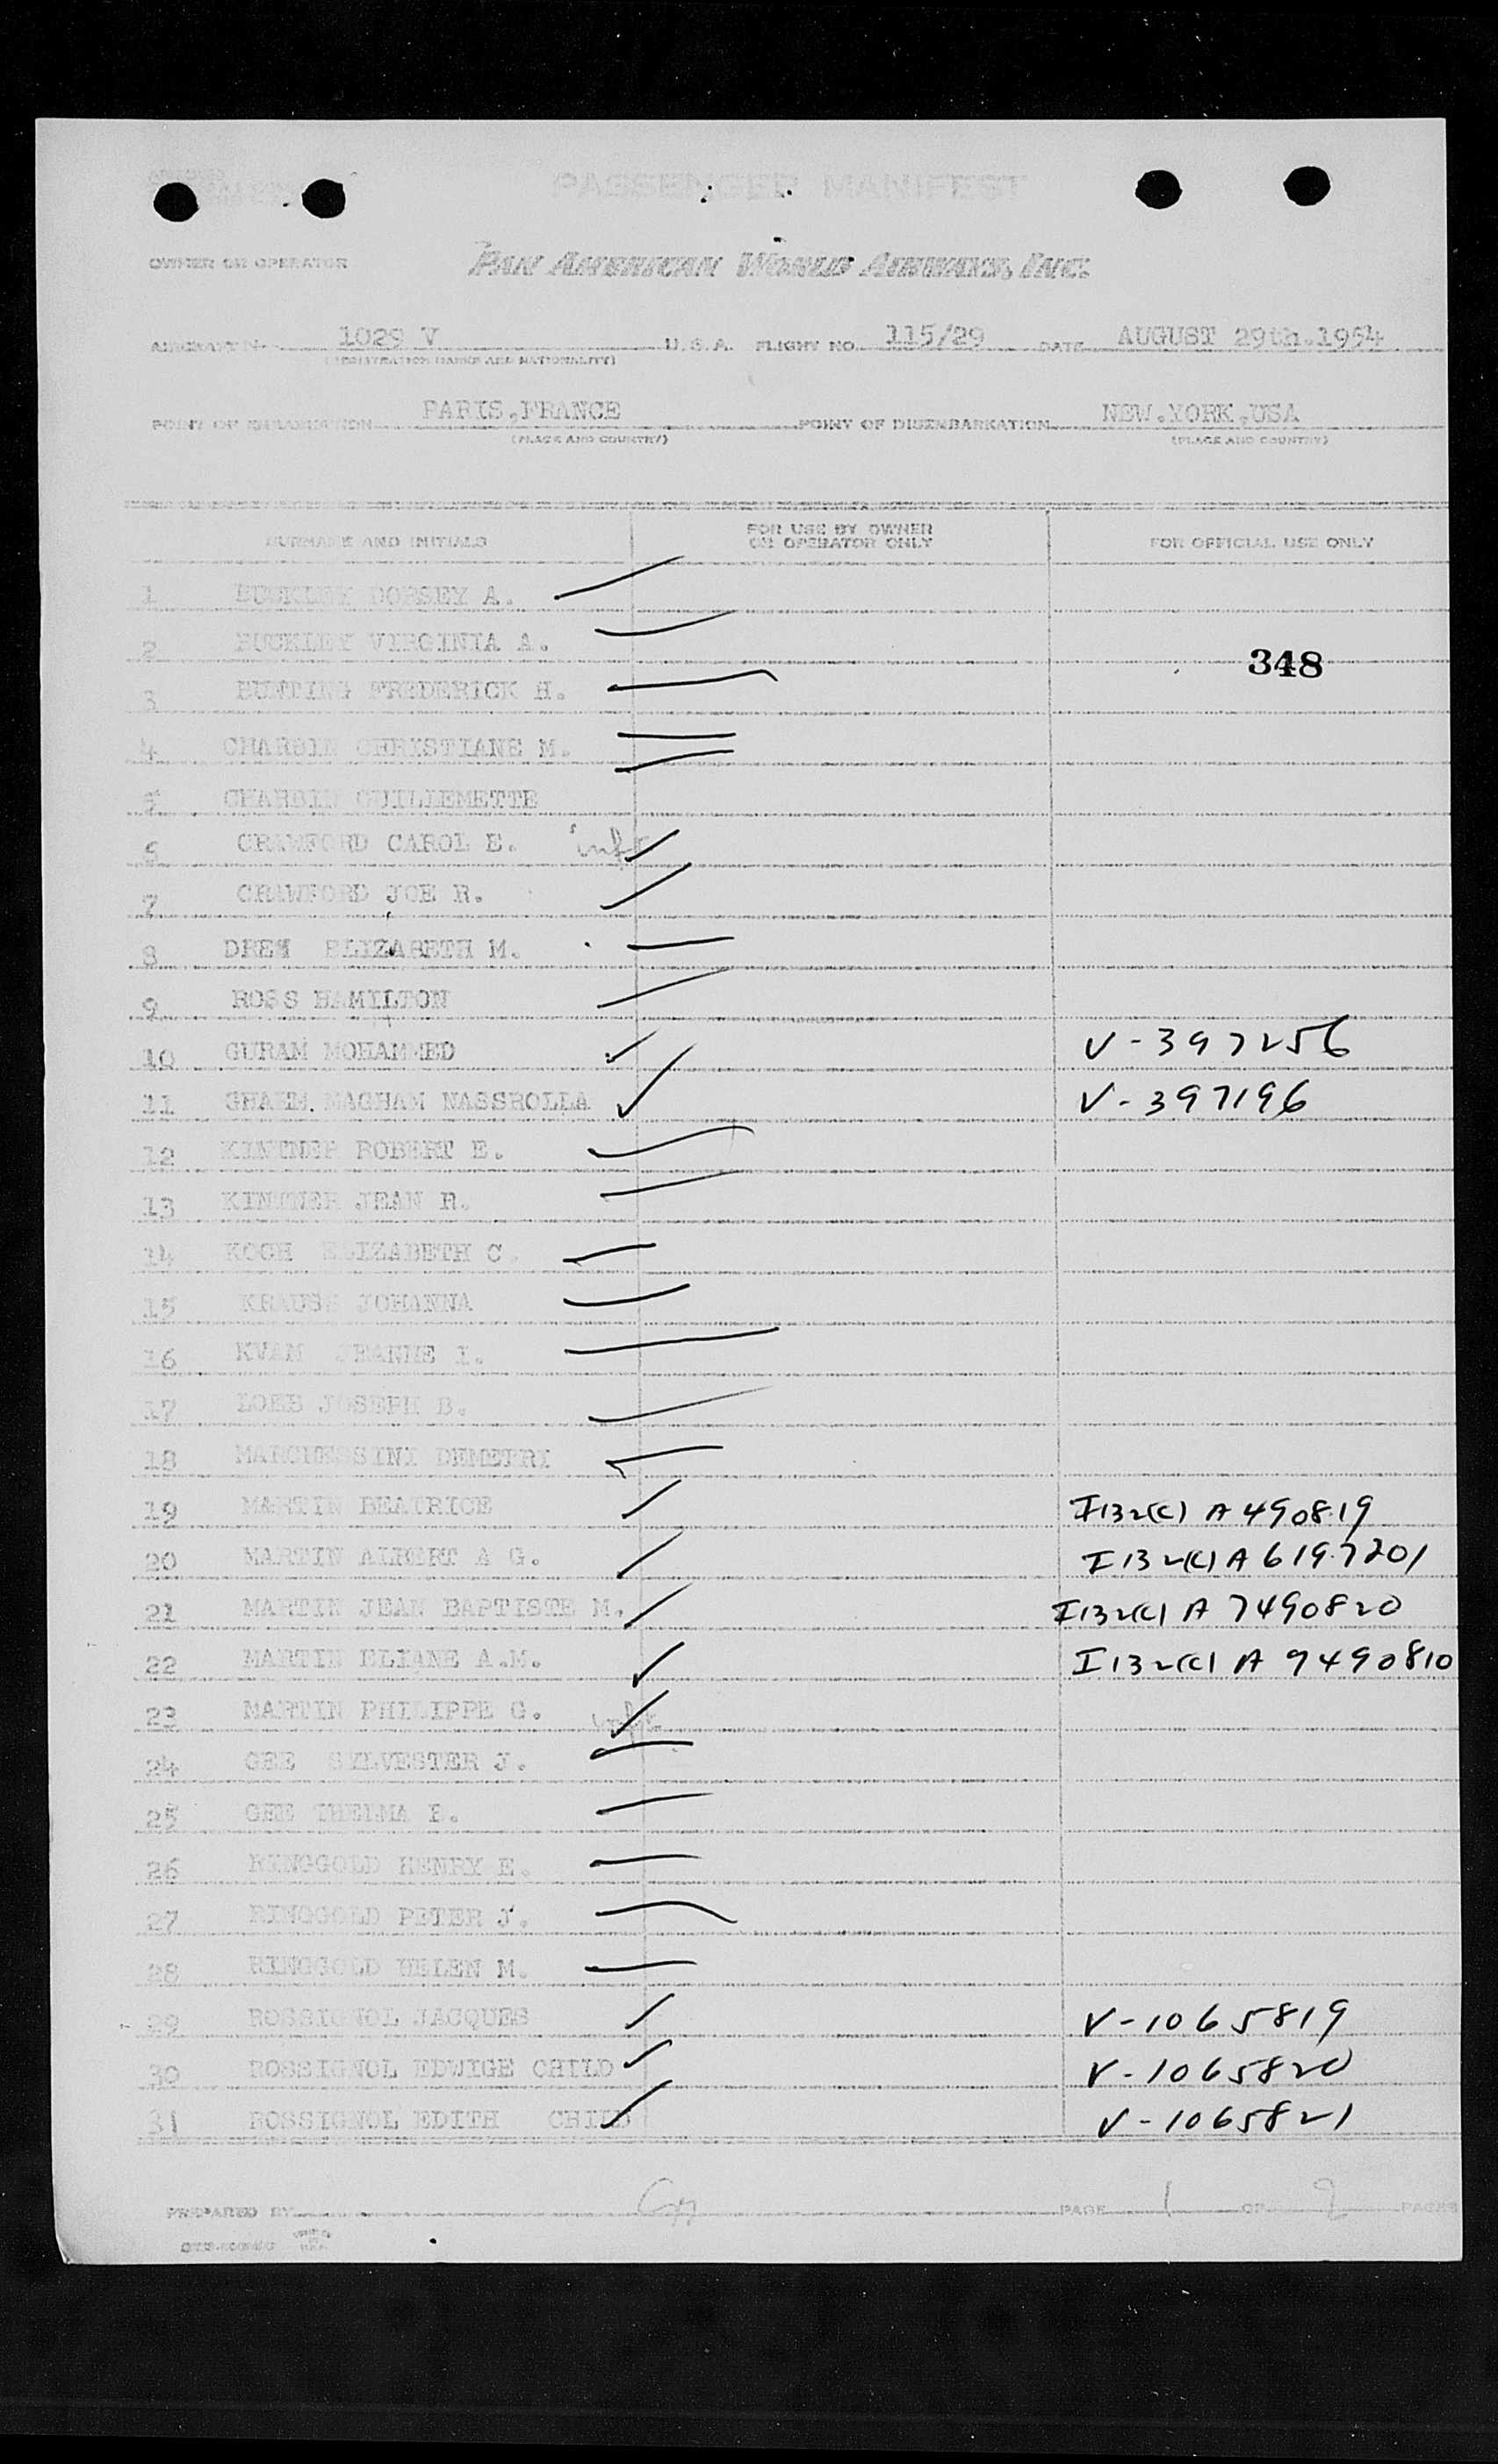 PASSENGER MANIFEST
OWNER OR OPERATOR PAN AMERICAN WORLD AIRWAYS, INC.
AIRCRAFT No. 1029 V U.S.A. FLIGHT NO. 115/29 DATE AUGUST 29th.1954
(REGISTRATION MARKS AND NATIONALITY)
POINT OF EMBARKATION PARIS,FRANCE POINT OF DISEMBARKATION NEW.YORK,USA
(PLACE AND COUNTRY) (PLACE AND COUNTRY)
SURNAME AND INITIALS FOR USE BY OWNER OR OPERATOR ONLY FOR OFFICIAL USE ONLY
1 BUCKLEY DORSEY A.
2 BUCKLEY VIRGINIA A.
348
3 BUNTING FREDERICK H.
4 CHARBIN CHRISTIANE M.
5 CHARBIN GUILLEMETTE
6 CRAWFORD CAROL E. inft
7 CRAWFORD JOE R.
8 DREW ELIZABETH M.
9 ROSS HAMILTON
10 GURAN MOHAMMED V-397256
11 GHAEM.MAGHAM NASSROLLA V-397196
12 KINTNER ROBERT E.
13 KINTNER JEAN R.
14 KOCH ELIZABETH C.
15 KRAUSE JOHANNA
16 KVAM JEANNE I.
17 LOEB JOSEPH B.
18 MARCHESSINI DEMETRI
19 MARTIN BEATRICE I132(C) A 490819
20 MARTIN ALBERT A G. I132(C) A 6197201
21 MARTIN JEAN BAPTISTE M. I132(C) A 7490820
22 MARTIN ELIANE A.M. I132(C) A 9490810
23 MARTIN PHILIPPE G. inft
24 GEE SYLVESTER J.
25 GEE THELMA E.
26 RINGGOLD HENRY E.
27 RINGGOLD PETER J.
28 RINGGOLD HELEN M.
29 ROSSIGNOL JACQUES V-1065819
30 ROSSIGNOL EDWIGE CHILD V-1065820
31 ROSSIGNOL EDITH CHILD V-1065821
PREPARED BY PAGE 1 OF 2 PAGES